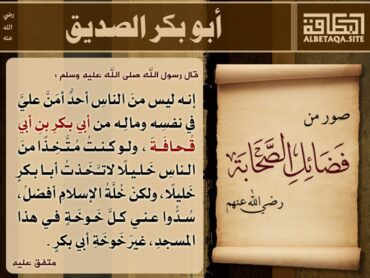 أبو بكر الصديق
رضي
الله
عنه
البطاقة
ALBETAQA.SITE
قال رسول الله صلى الله عليه وسلم :
إنه ليس منَ الناسِ أحدٌ أمَنَّ عليَّ
في نفسِه ومالِه من أبي بكرِ بنِ أبي
قُحافَةَ ، ولو كنتُ مُتَّخذًا منَ
الناسِ خَليلًا لاتخَذتُ أبا بكرٍ
خَليلًا ، ولكنْ خُلَّةُ الإسلامِ أفضلُ ،
سُدُّوا عني كلَّ خَوخَةٍ في هذا
المسجدِ ، غيرَ خَوخَةِ أبي بكرٍ .
متفق عليه
صور من
فضائل الصحابة
رضي الله عنهم